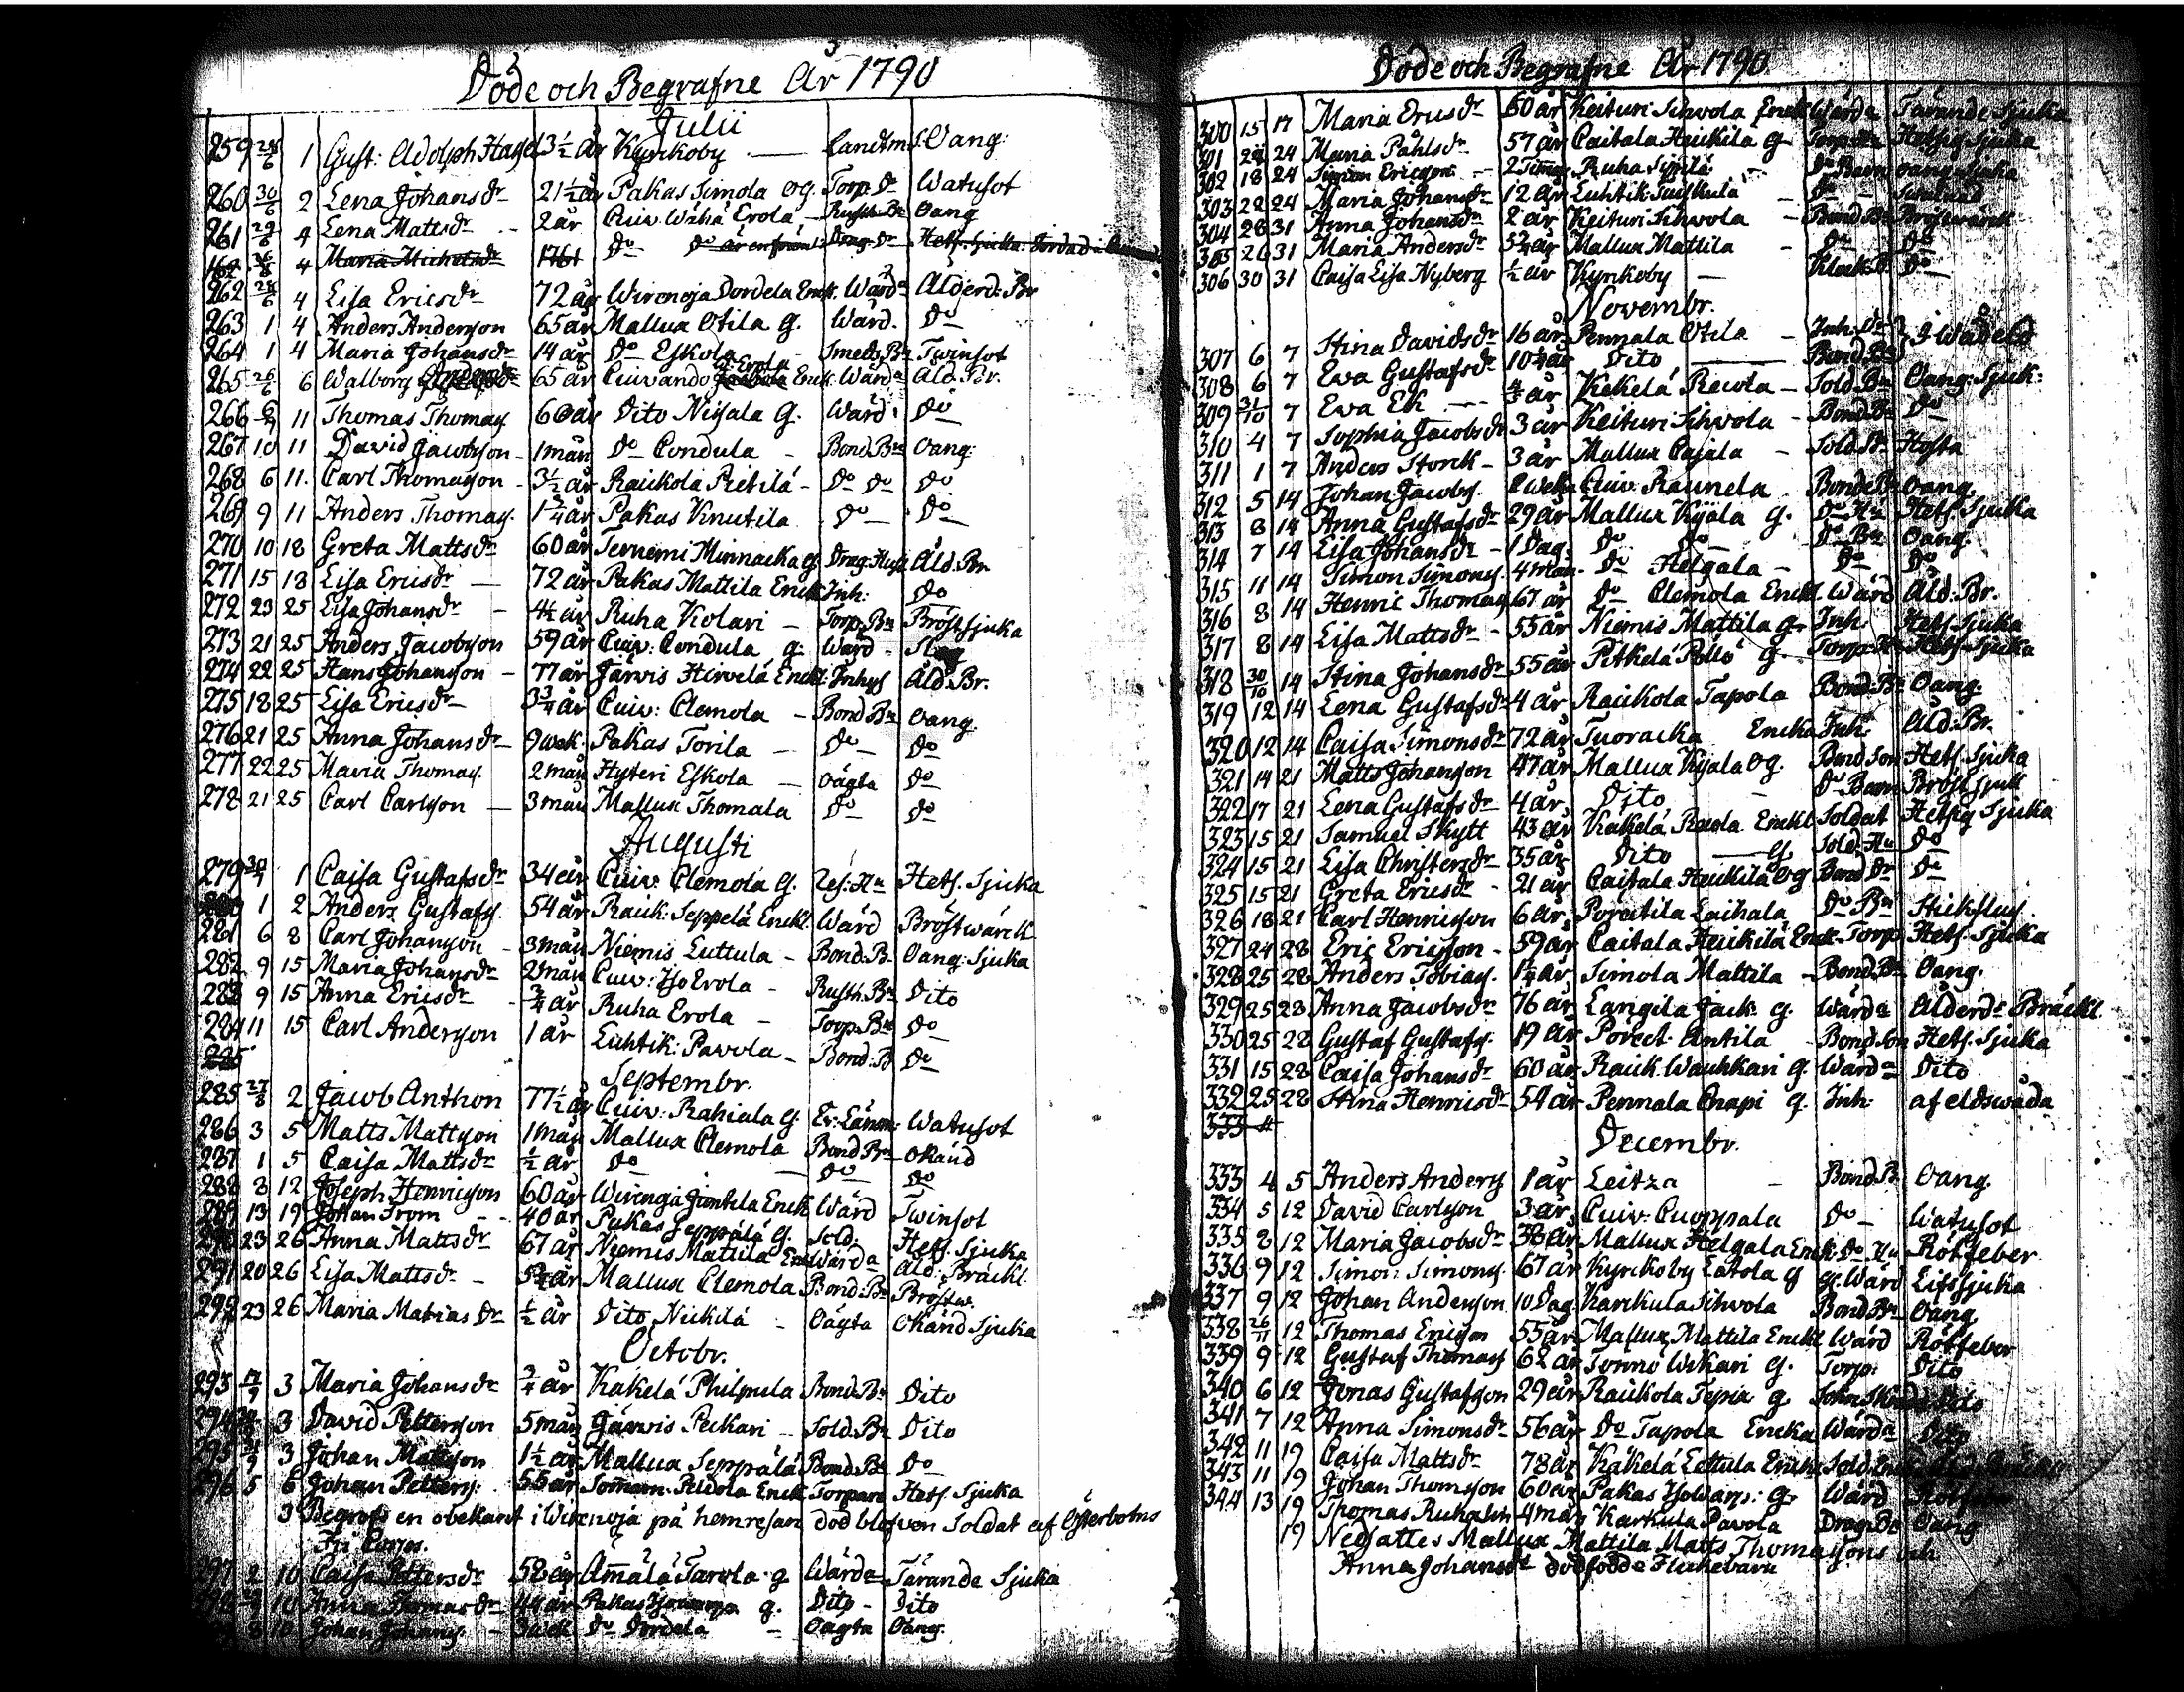 Döde och Begrafne År 1790
Julii
259 28/6 1 Gust: Adolph 3½ år Kyrkoby — Landtm: S. Oang:
260 30/6 2 Lena Johansdr 21½ år Pakas Simola og. Torp. Dr Watusot
261 29/6 4 Lena Mattsdr 2 år Cuiv. Wähä Erola Rusth. Bn Oang
162 4 Maria Michelsdr 1761 Do Do Drag. Dr Hets. Sjuka
262 28/6 4 Lisa Ericsdr 72 år Wirenoja Dordela Enck. Wärda Ålderd: Br
263 1 4 Anders Anderson 65 år Mallux Otila g. Wärd. Do
264 1 4 Maria Johansdr 14 år Do Eskola Smeds Bn Twinsot
265 26/6 6 Walborg 65 år Cuivando Erola Enck. Wärda Åld. Br.
266 11 Thomas Thomas. 60 år Dito Nisala G. Wärd. Do
267 10 11 David Jacobson 1 mån Do Condula Bond. Bn Oang:
268 6 11. Carl Thomasson 3½ år Raickola Pietilä Do Do Do
269 9 11 Anders Thomas. 1¾ år Pakas Knutila Do Do
270 10 18 Greta Mattsdr 60 år Teruemi Minnacka g. Drag. Hust Åld. Br.
271 15 18 Lisa Ericsdr 72 år Pakas Mattila Enck. Inh: Do
272 23 25 Lisa Johansdr 4½ år Ruha Kolari Torp. Bn Bröstsjuka
273 21 25 Anders Jacobson 59 år Cuiv: Condula g. Wärd
274 22 25 Hans Johanson 77 år Järvis Hirvelä Enckl. Inhys Åld. Br.
275 18 25 Lisa Ericsdr 3¾ år Cuiv: Clemola Bond Bn Oang.
276 21 25 Anna Johansdr 9 wek. Pakas Torila Do Do
277 22 25 Maria Thomas. 2 mån Hyteri Eskola oägta Do
278 21 25 Carl Carlson 3 mån Mallux Thomala Do Do
Augusti
279 30/7 1 Caisa Gustafsdr 34 år Cuiv: Clemola G. Res. Hu Hets. Sjuka
280 1 2 Anders Gustafs. 54 år Raick: Seppelä Enckl. Wärd Bröstwärck
281 6 8 Carl Johanson 3 mån Niemis Luttula Bond. B. Oang: Sjuka
282 9 15 Maria Johansdr 2 mån Cuiv: Iso Erola Rusth. Bn Dito
283 9 15 Anna Ericsdr ¾ år Ruha Erola Torp. Bn Do
284 11 15 Carl Anderson 1 år Luhtik: Pavola Bond: B Do
285
Septembr.
285 27/8 2 Jacob Anthon 77½ år Cuiv: Rahiala g. Ex: Länsm: Watusot
286 3 5 Matts Mattson 1 mån Mallux Clemola Bond Bn Okänd
287 1 5 Caisa Mattsdr ½ år Do Do Do
288 8 12 Joseph Henricson 60 år Wirenoja Juntila Enck Wärd Twinsot
289 13 19 Johan Trom 40 år Pakas Seppälä G. Sold: Hets. Sjuka
290 23 26 Anna Mattsdr 67 år Niemis Mattila Enk Wärda Åld: Bräckl.
291 20 26 Lisa Mattsdr 5¾ år Mallux Clemola Bond: Bn Bröstw.
292 23 26 Maria Matiasdr ½ år Dito Nickilä Oägta Okänd Sjuka
Octobr.
293 17/9 3 Maria Johansdr ¾ år Käkelä Philpula Bond. Bn Dito
294 3 David Petterson 5 mån Järvis Peckari Sold. Bn Dito
295 3 Johan Mattson 1½ år Mallux Seppälä Bond. Bn Do
296 5 6 Johan Petters. 55 år Enckl Torpare Hets. Sjuka
3 Begrofs en obekant i Wirenoja på hemresan död blefven Soldat af Österbotns
297 2 10 Caisa Pettersdr 58 år Ammälä Tarola g Wärda Tärande Sjuka
10 Anna Thomasdr 44 år g. Dito Dito
8 10 Johan Johans. 3 wek Do Dordela Oägta Oang.
Döde och Begrafne År 1790
300 15 17 Maria Ericsdr 60 år Keituri Sihvola Enck Wärda Tärande Sjuka
301 24 Maria Påhlsdr 57 år Caitala Heickilä g Hetsig Sjuka
302 18 24 Simon Ericson Ruha Sipilä Do Barn oang. Sjuka
303 22 24 Maria Johansdr 12 år Do
304 28 31 Anna Johansdr 2 år Keituri Sihvola Bond Bn Bröstwärck
305 26 31 Maria Andersdr 5¾ år Mallux Mattila Do Do
306 30 31 Caisa Lisa Nyberg ½ år Kyrkoby Klock. B. Do
Novembr.
307 6 7 Stina Davidsdr 16 år Pennala Otila Inh. Dr I Wådeld
308 6 7 Ewa Gustafsdr 10¾ år Dito Bond. Bn
309 31/10 7 Ewa Ek ¾ år Kekelä Rewola Sold. Bn Oang: Sjuk:
310 4 7 Sophia Jacobsdr 3 år Keituri Sihvola Bond. Bn Do
311 1 7 Anders Storck 3 år Mallux Casala Sold. Bn Hosta
312 5 14 Johan Jacobs. 8 wek Cuiv. Raunela Bonde Bn Oang.
313 8 14 Anna Gustafsdr 29 år Mallux Kyala g. Do Hu Hets. Sjuka
314 7 14 Lisa Johansdr 1 Dag. Do Do Do Bn Oang.
315 11 14 Simon Simons. 4 mån. Do Helgala Do Do
316 8 14 Henric Thomas. 67 år Do Clemola Enckl. Wärd Åld: Br.
317 8 14 Lisa Mattsdr 55 år Niemis Mattila g. Inh. Hets. Sjuka
318 30/10 14 Stina Johansdr 55 år Pitkelä Pollo g. Torp. Hu Hets. Sjuka
319 12 14 Lena Gustafsdr 4 år Raickola Tapola Bond. Bn Oang.
320 12 14 Caisa Simonsdr 72 år Tuoracka Encka Inh. Åld: Br.
321 14 21 Matts Johanson 47 år Mallux Kyala og. Bond Son Hets. Sjuka
322 17 21 Lena Gustafsdr 4 år Dito Do Barn Bröstsjuk
323 15 21 Samuel Skytt 43 år Käkelä Rewola Enckl Soldat Hetsig Sjuka
324 15 21 Lisa Christersdr 35 år Dito g. Sold. Hu Do
325 15 21 Greta Ericsdr 21 år Caitala Heickilä og Bond Dr Do
326 18 21 Carl Henricson 6 år Porcatila Laihala Do Bn Stickflus.
327 24 28 Eric Ericsson 59 år Caitala Heickilä Enck Torp. Hets. Sjuka
328 25 28 Anders Tobias. 1¼ år Simola Mattila Bond. Bn Oang.
329 25 28 Anna Jacobsdr 76 år Langila Jack g. Wärda Ålderd: Bräckl.
330 25 28 Gustaf Gustafs. 19 år Porcet. Antila Bond. Son Hets. Sjuka
331 15 28 Caisa Johansdr 60 år Raick Wauhkari g. Wärda Dito
332 25 28 Stina Henricsdr 54 år Pennala Cnapi g. Inh. af eldswåda
333
Decembr.
333 4 5 Anders Anders 1 år Leitza Bond. B Oang.
334 5 12 David Carlson 3 år Cuiv: Cuoppala Do Watusot
335 8 12 Maria Jacobsdr 38 år Mallux Helgala Enck Do Hu Rötfeber
336 9 12 Simon Simons. 67 år Kyrckoby Latola g gl. Wärd Lifssjuka
337 9 12 Johan Anderson 10 Dag. Karckula Sihvola Bond Bn Oang
338 26/11 12 Thomas Ericson 55 år Mallux Mattila Enckl Wärd Rötfeber
339 9 12 Gustaf Thomas 62 år Tonno Wekari g. Torp: Dito
340 6 12 Jonas Gustafson 29 år Raickola Tepia g
341 7 12 Anna Simonsdr 56 år Do Tapola Encka Wärda Dito
342 11 19 Caisa Mattsdr 78 år Käkelä Lettula Encka
343 11 19 Johan Thomsson 60 år Pakas g. Wärd Rötfeber
344 13 19 Thomas 4 mån Karkula Pavola Drag. Bn Oang
19 Nedsattes Mallux Mattila Matts Thomassons och
Anna Johansdr dödfödde Flickebarn